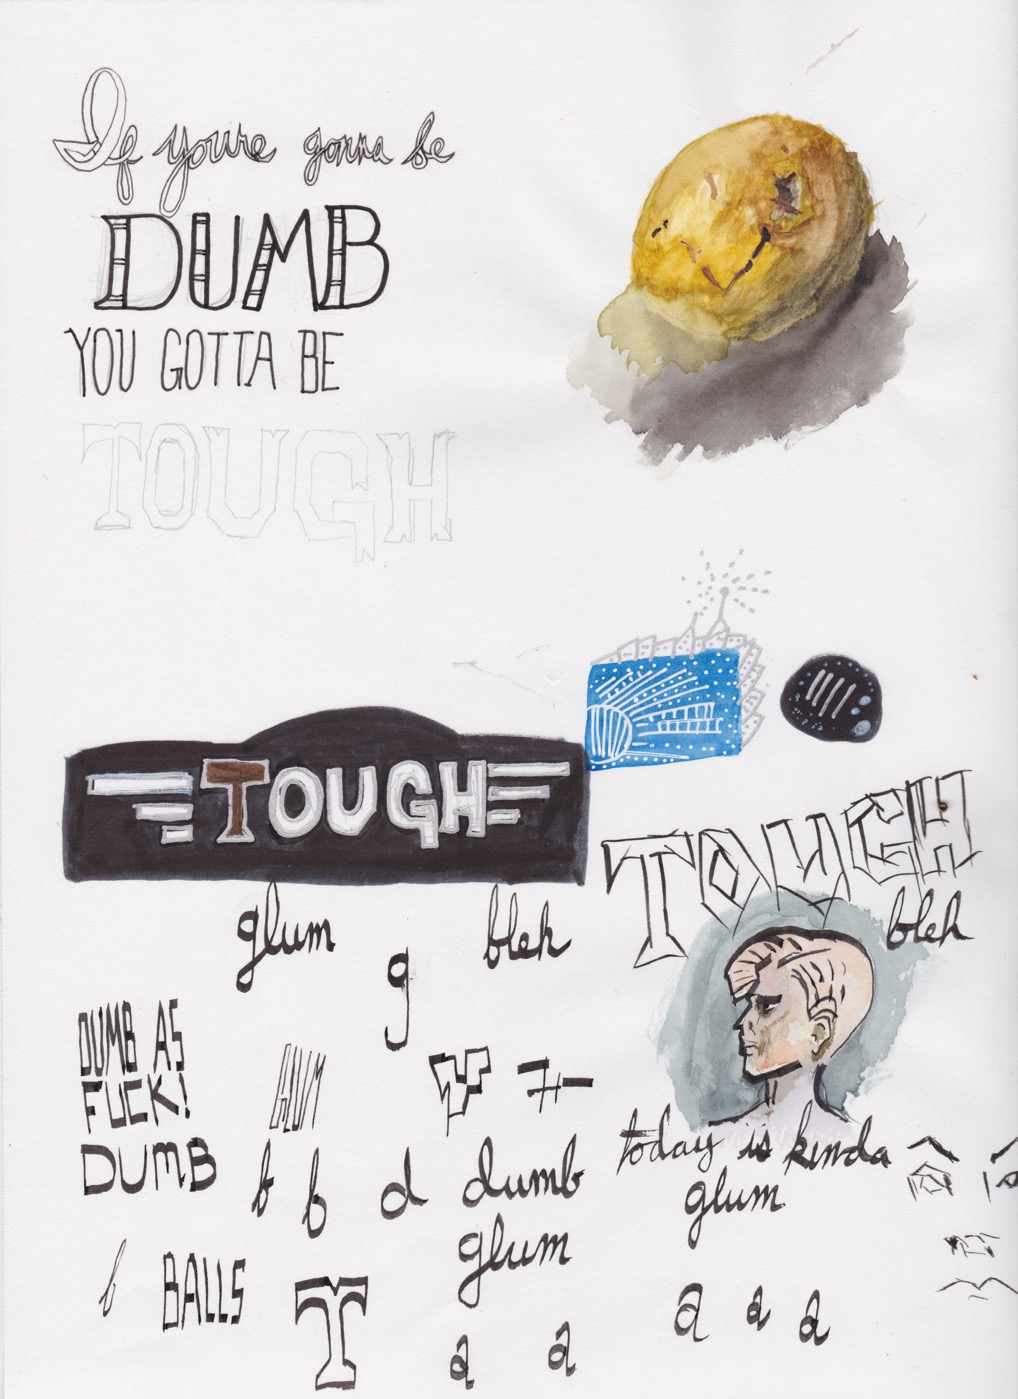 If youre gonna be
DUMB
YOU GOTTA BE
TOUGH
TOUGH
TOUGH
glum
bleh
bleh
g
DUMB AS
FUCK!
GLUM
DUMB
b
b
d
dumb
today is kinda
glum
glum
b
BALLS
T
a
a
a
a
a